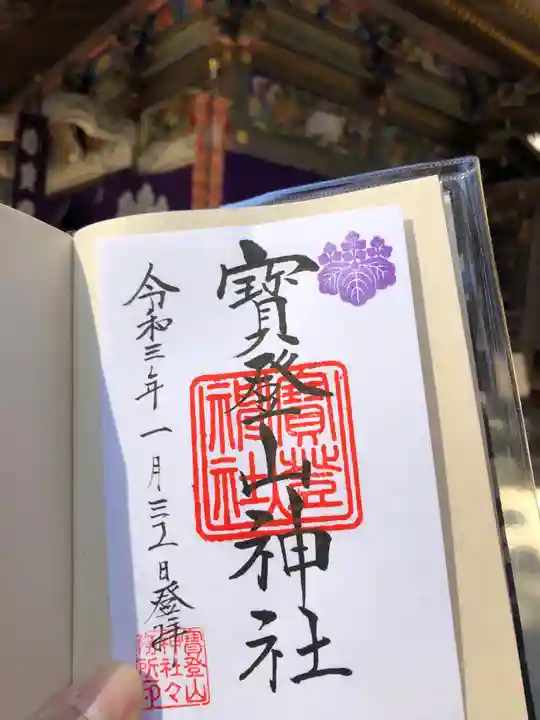 寳登山神社
寳登山神社
令和三年一月三十一日登拝
寳登山
神社々
務所印